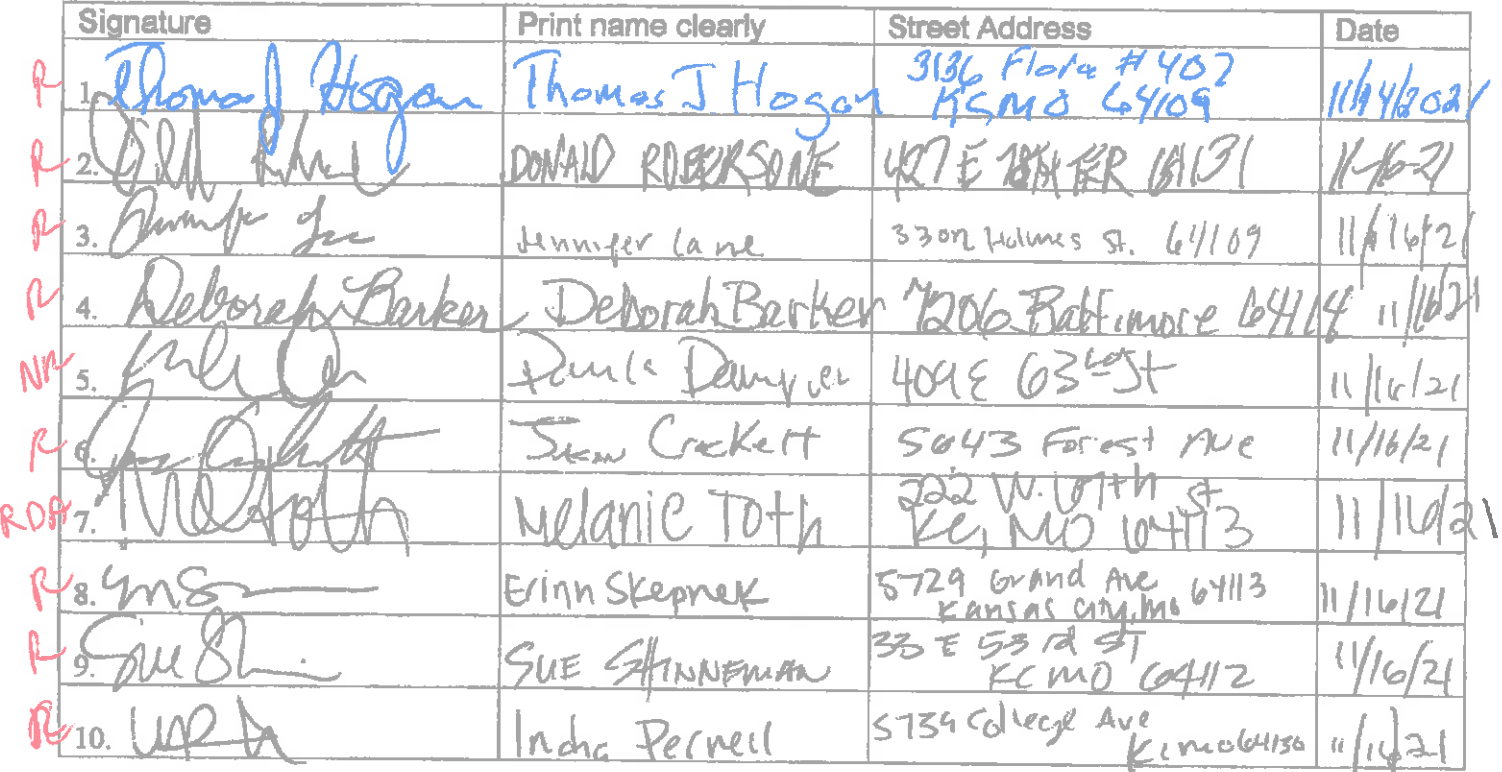 Signature Print name clearly Street Address Date
R 1. Thomas J Hogan Thomas J Hogan 3136 Flora # 407
KCMO 64109 11/14/2021
R 2. DONALD ROBERSONE 427 E 78TH TER 64131 11-16-21
R 3. Jennifer Lane 3301 Holmes St. 64109 11/16/21
R 4. Deborah Barker Deborah Barker 7206 Baltimore 64114 11/16/21
NR 5. Paula 409 E 63rd St 11/16/21
R 6. Crockett 5643 Forest Ave 11/16/21
RDA 7. Melanie Toth 222 W. 67th St
KC, MO 64113 11/16/21
R 8. Erinn Skepnek 5729 Grand Ave
Kansas City, Mo 64113 11/16/21
R 9. Sue SUE SHINNEMAN 33 E 53rd ST
KCMO 64112 11/16/21
R 10. Pernell 5739 College Ave
KCMO 64130 11/16/21